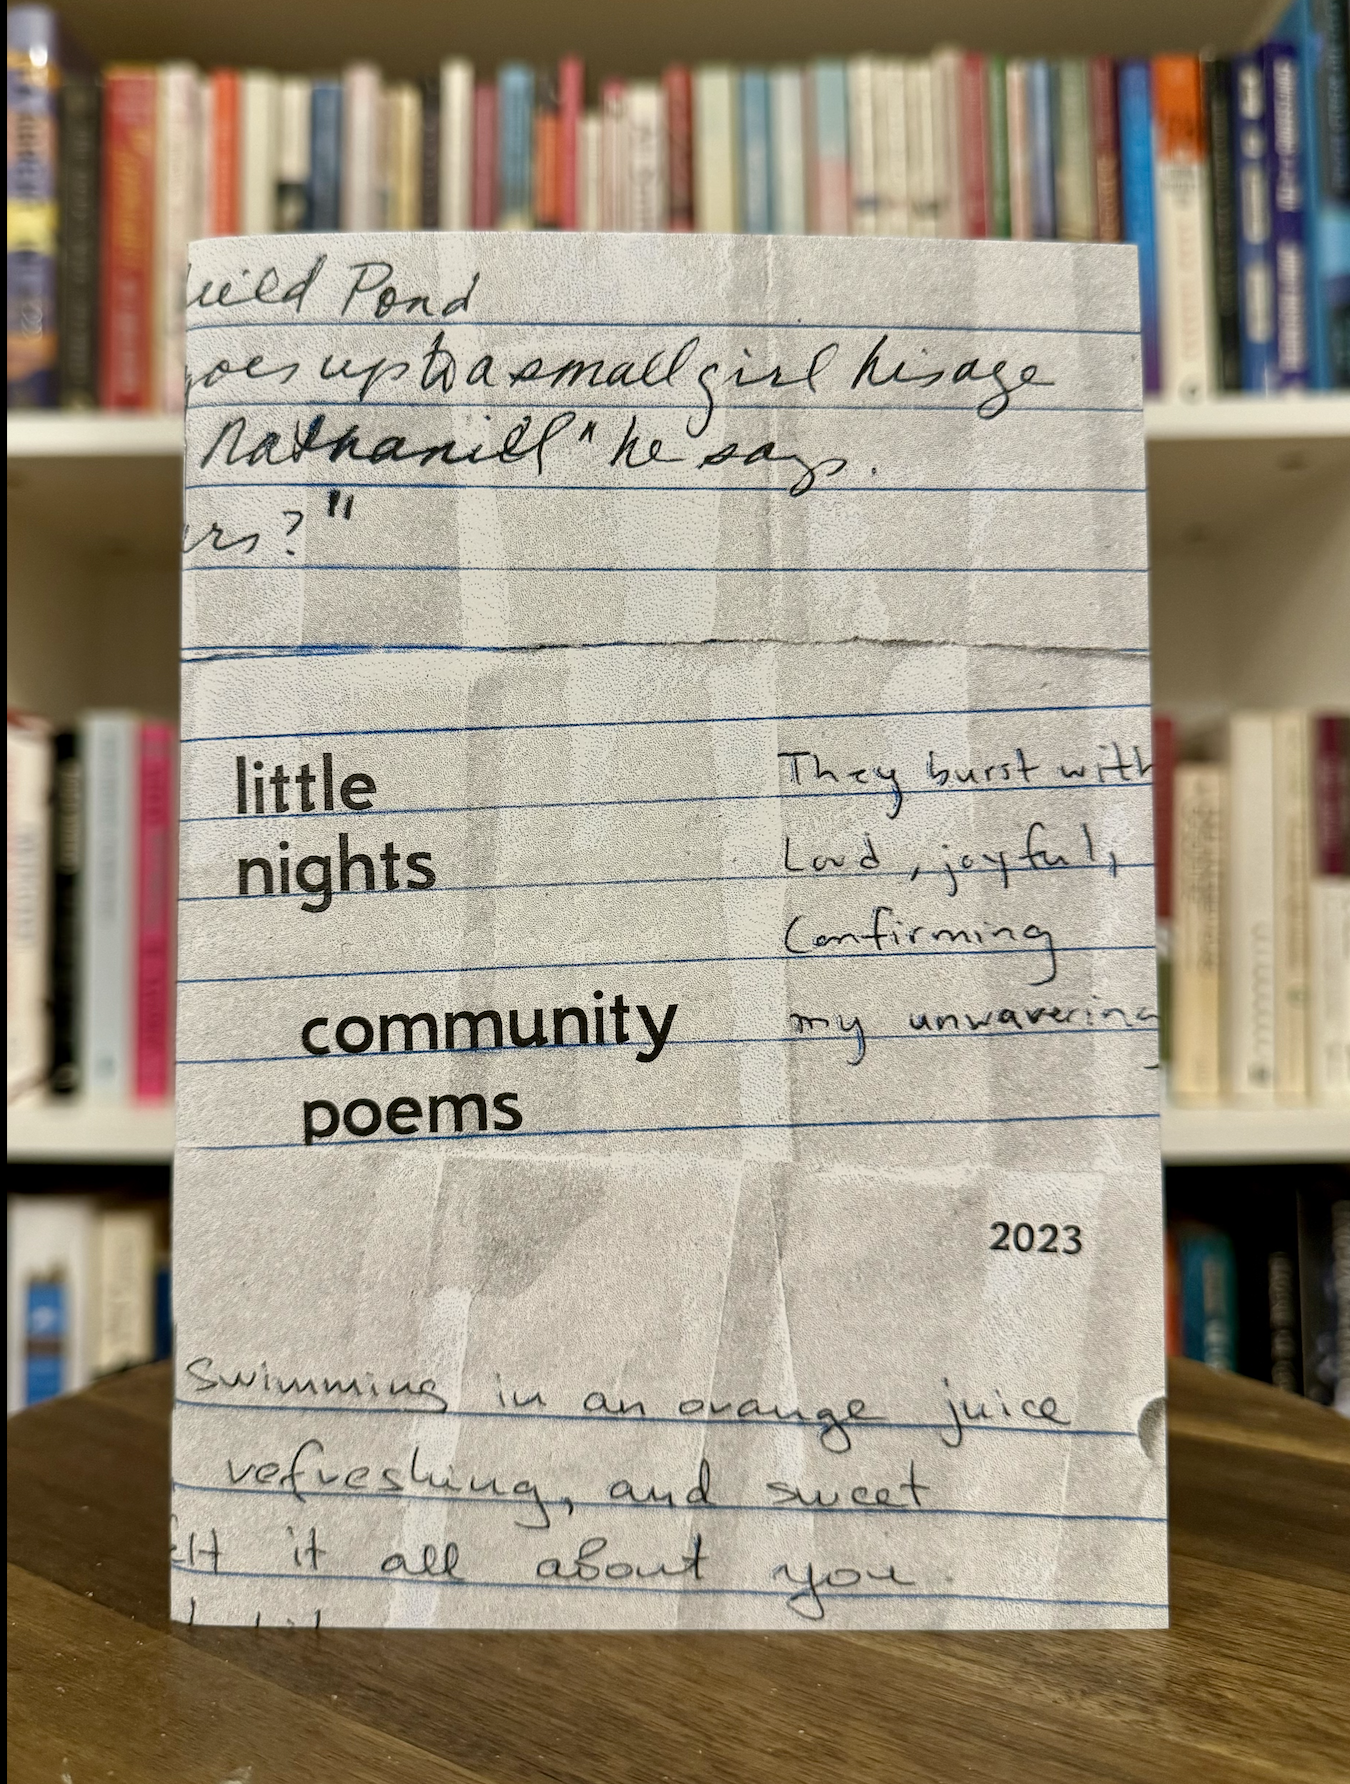 Pond
goes up to a small girl his age
Nathaniel" he says.
ers?"
little
nights
They burst with
Loud, joyful,
Confirming
community
my unwavering
poems
2023
Swimming in an orange juice
refreshing, and sweet
it all about you.